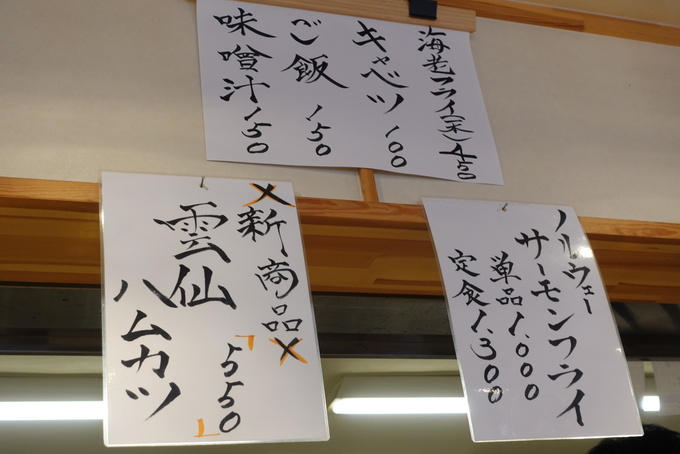 海老フライ(一本)450
キャベツ 100
ご飯 150
味噌汁 150
新商品
雲仙
ハムカツ
「550」
ノルウェー
サーモンフライ
単品 1,000
定食 1,300